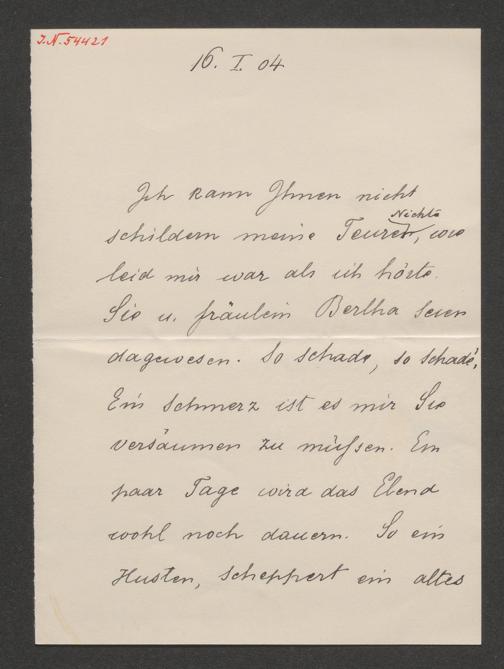 I.N. 54421
16. I. 04
Ich kann Ihnen nicht
Nichte
schildern meine Teure, wie
leid mir war als ich hörte
Sie u. fräulein Bertha seien
dagewesen. So schade, so schade!
Ein Schmerz ist es mir Sie
versäumen zu müßsen. Ein
paar Tage wird das Elend
wohl noch dauern. So ein
Husten, scheppert ein altes